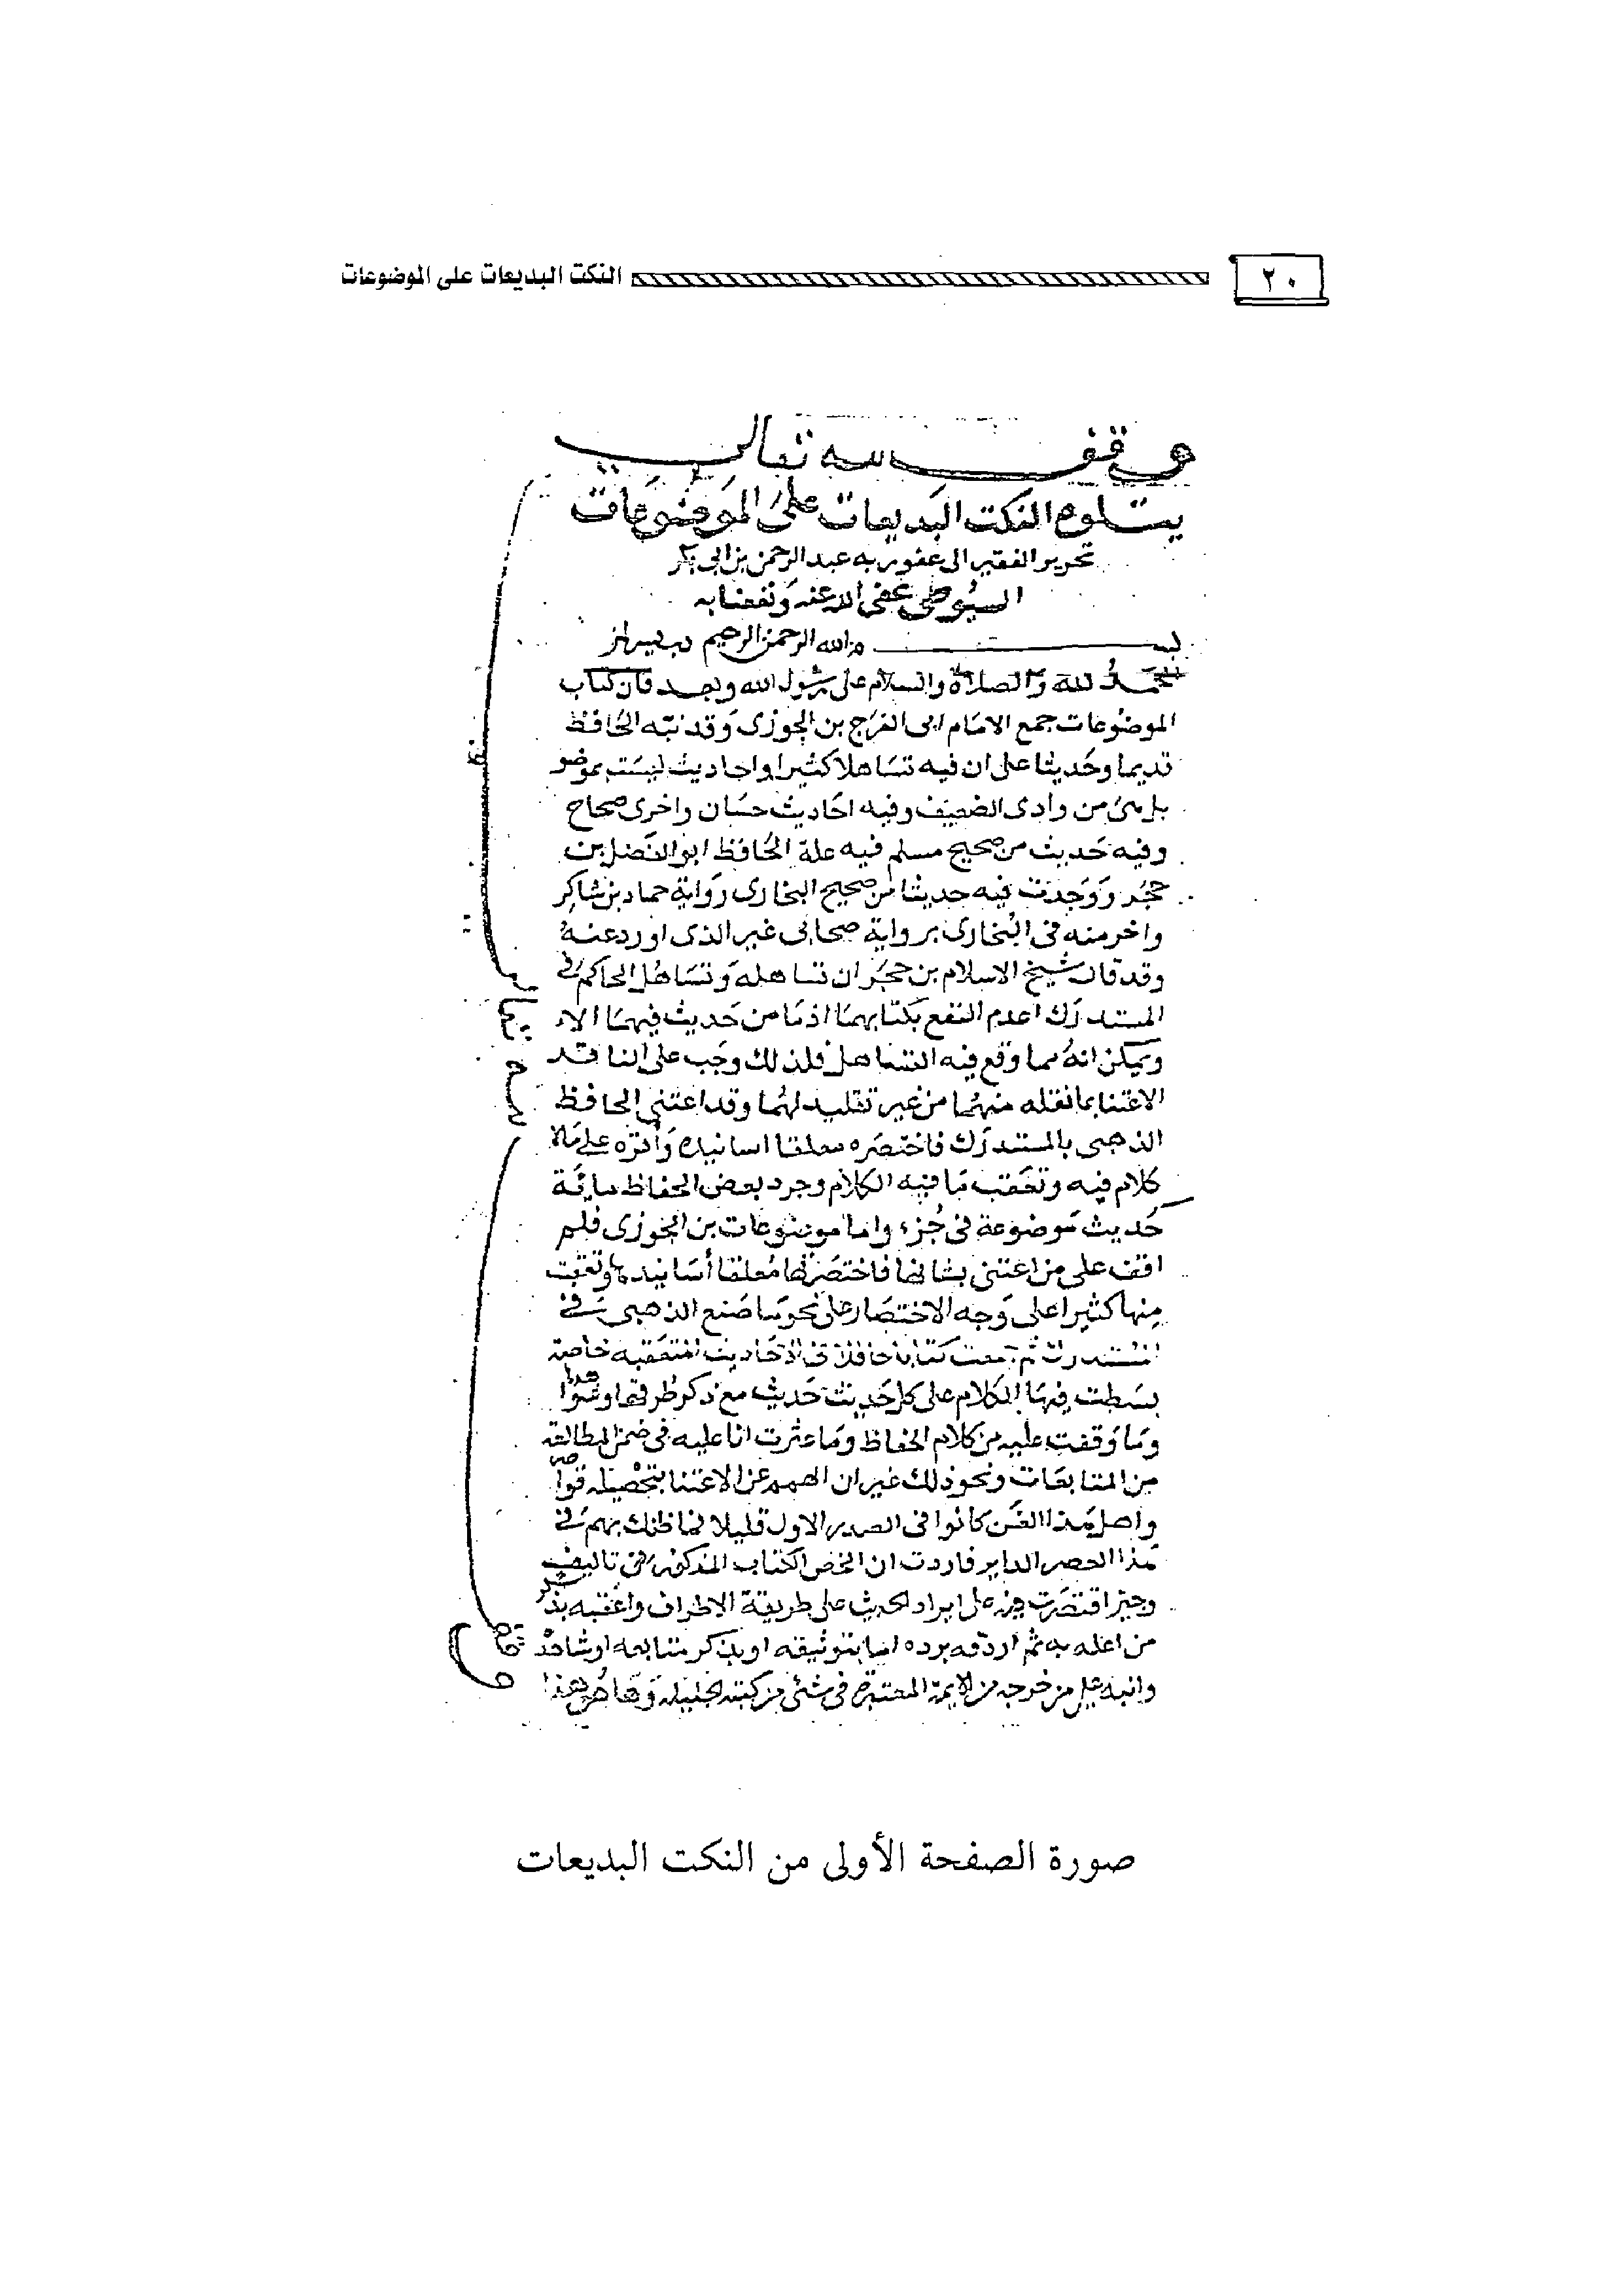 ٢٠
النكت البديعات على الموضوعات
وقف لله تعالى
يتلوه النكت البديعات على الموضوعات
تحرير الفقير الى عفو ربه عبد الرحمن بن ابي بكر
السيوطى عفى الله عنه ونفعنا به
بسم الله الرحمن الرحيم
الحمد لله والصلاة والسلام على رسول الله وبعد فان كتاب
الموضوعات جمع الامام ابى الفرج بن الجوزى وقد نبه الحافظ
قديما وحديثا على ان فيه تساهلا كثيرا واحاديث ليست بموضو
بل هى من وادى الضعيف وفيه احاديث حسان واخرى صحاح
وفيه حديث من صحيح مسلم فيه علة الحافظ ابو الفضل بن
حجر ووجدت فيه حديثا من صحيح البخارى رواية حماد بن شاكر
واخر منه فى البخارى برواية صحابى غير الذى اورد عنه
وقد قال شيخ الاسلام بن حجر ان تساهله وتساهل الحاكم فى
المستدرك اعدم النفع بكتابيهما اذ ما من حديث فيهما الا
ويمكن انه مما وقع فيه التساهل فلذلك وجب على الناقد
الاعتنا بما نقله منهما من غير تقليد لهما وقد اعتنى الحافظ
الذهبى بالمستدرك فاختصره معلقا اسانيده واقره على مالا
كلام فيه وتعقب ما فيه الكلام وجرد بعض الحفاظ مائة
حديث موضوعة فى جزء واما موضوعات بن الجوزى فلم
اقف على من اعتنى بشانها فاختصرتها معلقا أسانيدها وتعقبت
منها كثيرا على وجه الاختصار على نحو ما صنع الذهبى فى
المستدرك ثم جمعت كتابا حافلا فى الاحاديث المتعقبه خاصة
بسطت فيها الكلام على كل حديث حديث مع ذكر طرقها وشواهدها
وما وقفت عليه من كلام الحفاظ وما عثرت انا عليه فى ضمن المطالعة
من المتابعات ونحو ذلك غير ان الهمم عن الاعتنا بتحصيله قواصر
واهل هذا الفن كانوا فى الصدر الاول قليلا فما ظنك بهم فى
هذا العصر الداير فاردت ان الخص الكتاب المذكور فى تاليف
وجيز اقتصرت فيه على ايراد الحديث على طريقة الاطراف واعقبه بذكر
من اعله به ثم اردفه برده اما بتوثيقه او بذكر متابعه او شاهد
وانبه على من خرجه من الايمة المعتبرة فى شئ من كتبه الجليله وها هو هذا
صورة الصفحة الأولى من النكت البديعات